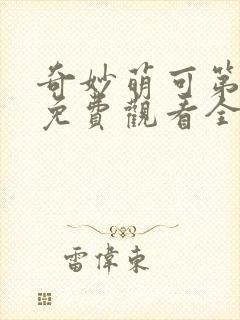 奇妙萌可第
免費觀看全
雷偉東